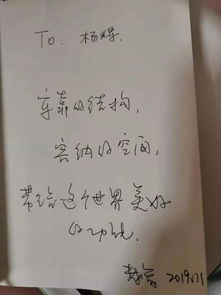 To: 杨
牢靠的结构,
容纳的空间,
带给这个世界美好
的功能.
2019.11